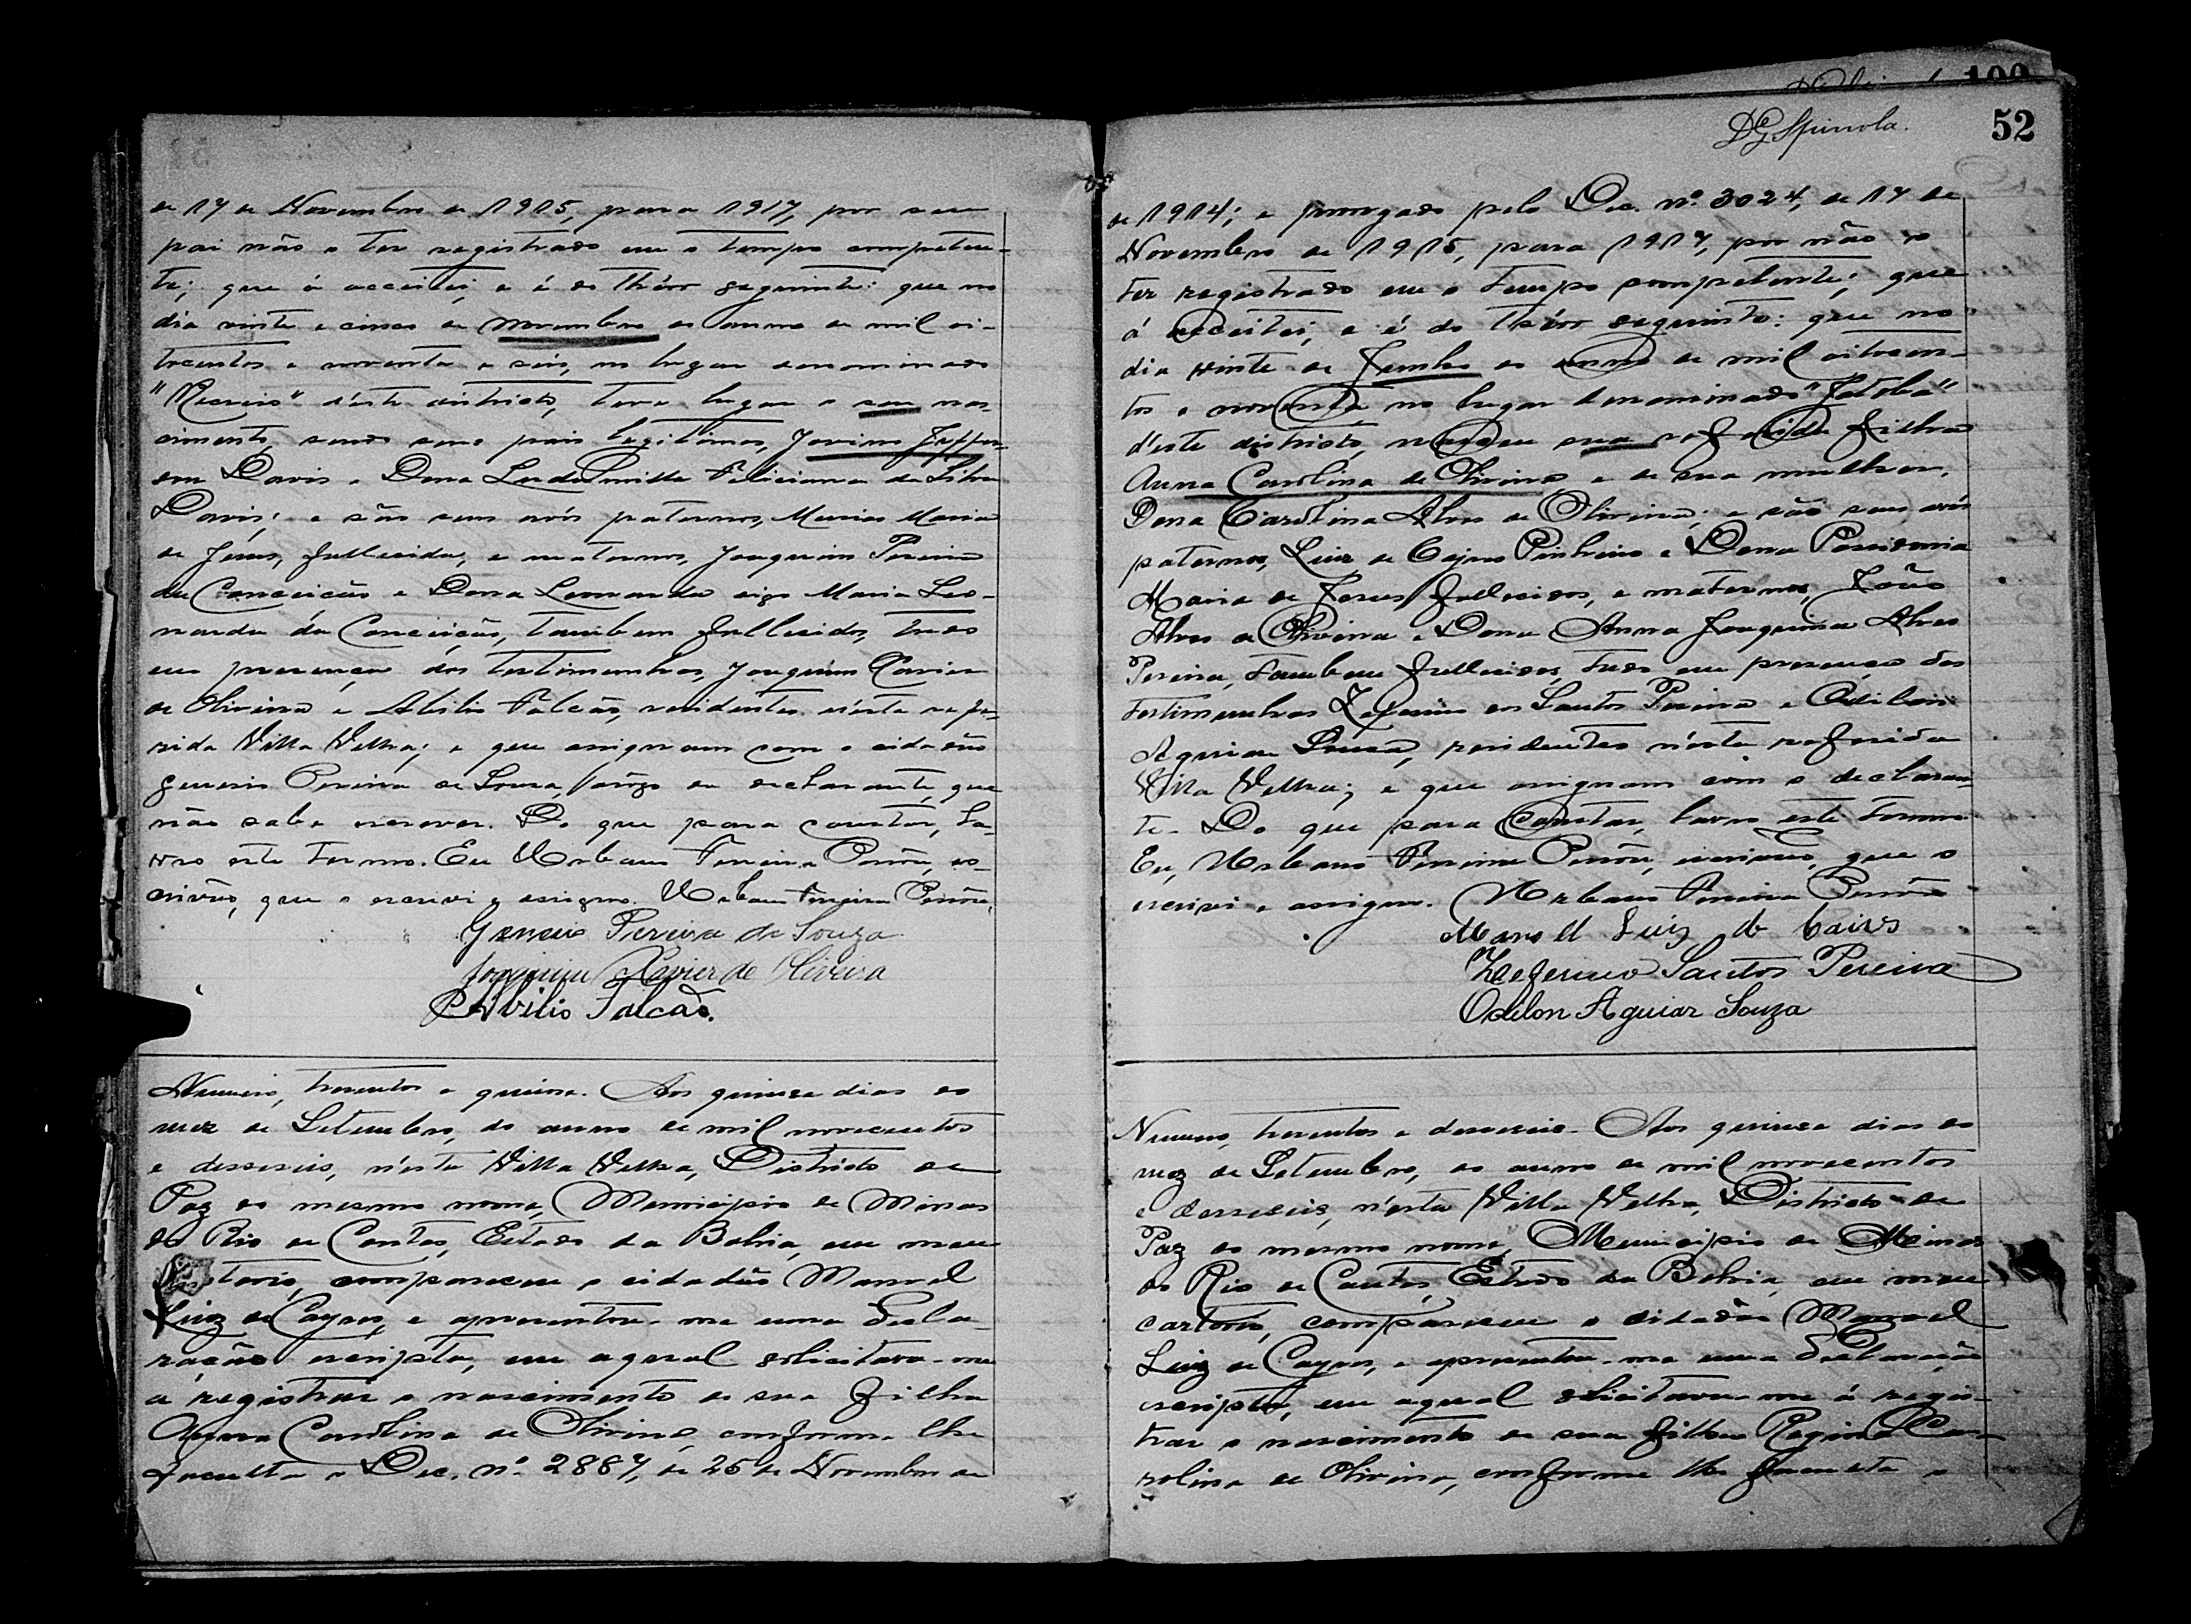 de 17 de Novembro de 1915, para 1917, por seu
pai não o ter registrado em o tempo competen-
te; que á acceitei, e é do theôr seguinte: que no
dia vinte e cinco de Novembro do anno de mil oi-
tocentos e noventa e seis, no lugar denominado
"Recreio" d'este districto, teve lugar o seu nas-
cimento, sendo seus pais legitimos, Jovino Jeffer-
son Davis e Dona Feliciana da Silva
Davis; e são seus avós paternos, Maria
de Jesus, fallecida, e maternos, Joaquim Pereira
da Conceição e Dona Leonarda digo Maria Leo-
narda da Conceição, tambem fallecidos, tudo
em presença das testimunhas, Joaquim Xavier
de Oliveira e Abilio Falcão, residentes n'esta refe-
rida Villa Velha; e que assignam com o cidadão
Genesio Pereira de Souza, á rôgo da declarante, que
não sabe escrever. Do que para constar, la-
vro este termo. Eu Urbano Pereira, es-
crivão, que o escrevi e assigno. Urbano Pereira
Genesio Pereira de Souza
Joaquim Xavier de Oliveira
Abilio Falcão.
Numero, tresentos e quinse. Aos quinse dias do
mez de Setembro, do anno de mil novecentos
e desseseis, n'esta Villa Velha, Districto de
Paz do mesmo nome, Municipio de Minas
do Rio de Contas, Estado da Bahia, em meu
cartorio, compareceu o cidadão Manoel
Luiz de Cayres, e apresentou-me uma decla-
ração escripta, em a qual solicitava-me
a registrar o nascimento de sua filha
Anna Carolina de Oliveira, conforme lhe
faculta o Dec. nº 2887, de 25 de Novembro de
DG Spinola.
52
de 1914; e prorogado pelo Dec. nº 3024, de 17 de
Novembro de 1915, para 1917, por não o
ter registrado em o tempo competente; que
á acceitei, e é do theôr seguinte: que no
dia vinte de Junho do anno de mil oitocen-
tos e noventa no lugar denominado "Jatobá"
d'este districto, nasceu sua referida filha
Anna Carolina de Oliveira e de sua mulher,
Dona Carolina Alves de Oliveira; e são seus avós
paternos, Luiz de Cayres Pinheiro e Dona Possidonia
Maria de Jesus, fallecidos, e maternos, João
Alves de Oliveira e Dona Anna Joaquina Alves
Pereira, tambem fallecidos, tudo em presença das
testimunhas Zeferino dos Santos Pereira e Odilon
Aguiar Souza, residentes n'esta referida
Villa Velha; e que assignam com o declaran-
te. Do que para constar, lavro este termo.
Eu, Urbano Pereira, escrivão, que o
escrevi e assigno. Urbano Pereira
Manoel Luiz de Caires
Zeferino Santos Pereira
Odilon Aguiar Souza
Numero, tresentos e desseseis. Aos quinse dias do
mez de Setembro, do anno de mil novecentos
e desseseis, n'esta Villa Velha, Districto de
Paz do mesmo nome, Municipio de Minas
do Rio de Contas, Estado da Bahia, em meu
cartorio, compareceu o cidadão Manoel
Luiz de Cayres, e apresentou-me uma declaração
escripta, em a qual solicitava-me á regis-
trar o nascimento de sua filha Regina Ca-
rolina de Oliveira, conforme lhe faculta o